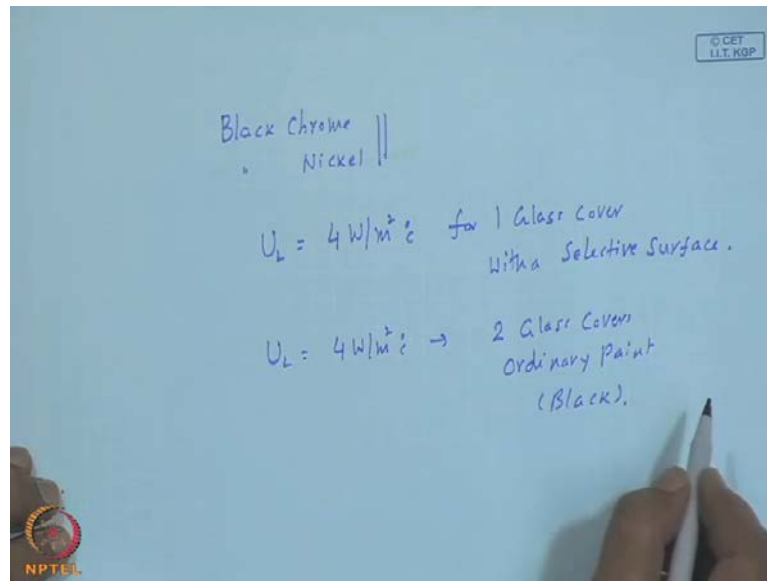 © CET
I.I.T. KGP
Black Chrome
" Nickel ||
U_L = 4 W/m² °c for 1 Glass Cover
With a Selective Surface.
U_L = 4 W/m² °c → 2 Glass Covers
Ordinary Paint
(Black).
NPTEL